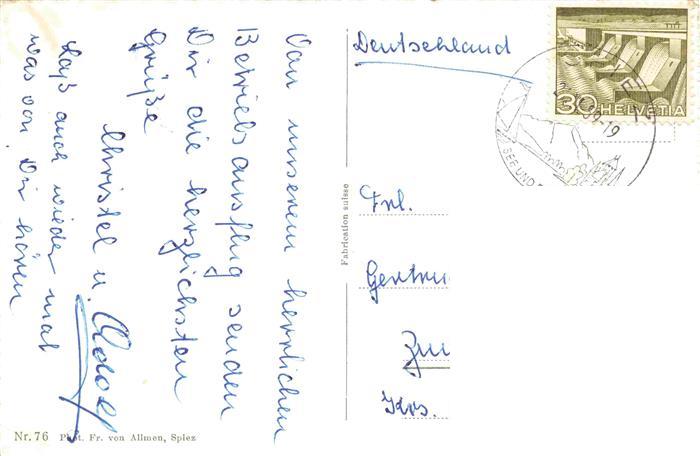 Von unserem herrlichen
Betriebsausflug senden
Dir die herzlichsten
Grüße
Christel u. Adolf
Laß auch wieder mal
was von Dir hören
Deutschland
30 HELVETIA
SEE UND
Frl.
Gertru
Zur
Krs.
Fabrication suisse
Nr. 76 Phot. Fr. von Allmen, Spiez